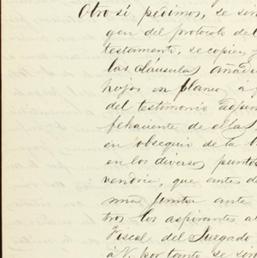 Otro sí pedimos, se sir
gen del protocolo de
testamento, se copien y
las cláusulas añadi
hojas en blanco, a f
del testimonio
fehaciente de ellas
en obsequio de la b
en los diversos puntos
vendria, que antes de
una junta ante
tros los aspirantes a
Fiscal del Juzgado
á V. por tanto se sir